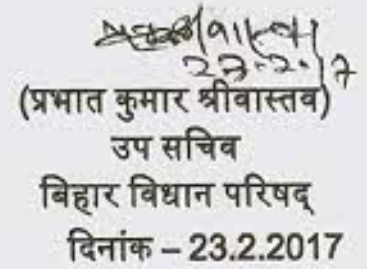 23.2.17
(प्रभात कुमार श्रीवास्तव)
उप सचिव
बिहार विधान परिषद्
दिनांक – 23.2.2017